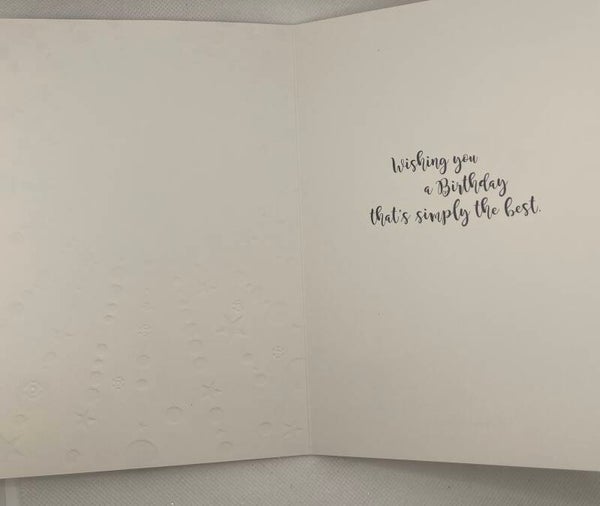 Wishing you
a Birthday
that's simply the best.